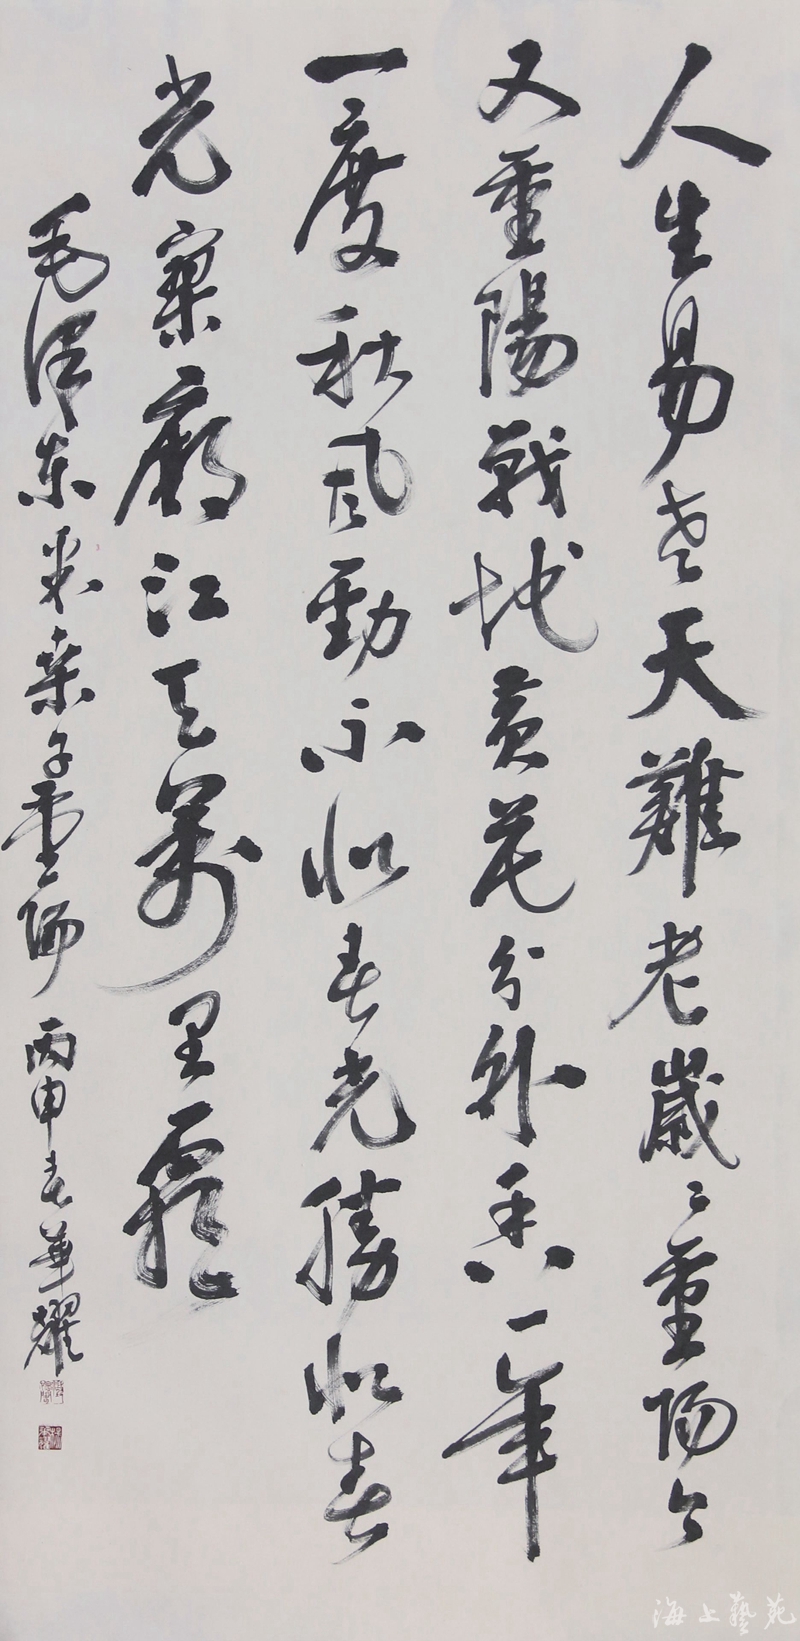 人生易老天難老歲々重陽今
又重陽戰地黄花分外香一年
一度秋風勁不似春光勝似春
光寥廓江天萬里霜
毛澤东采桑子重陽 丙申春華耀
海上藝苑